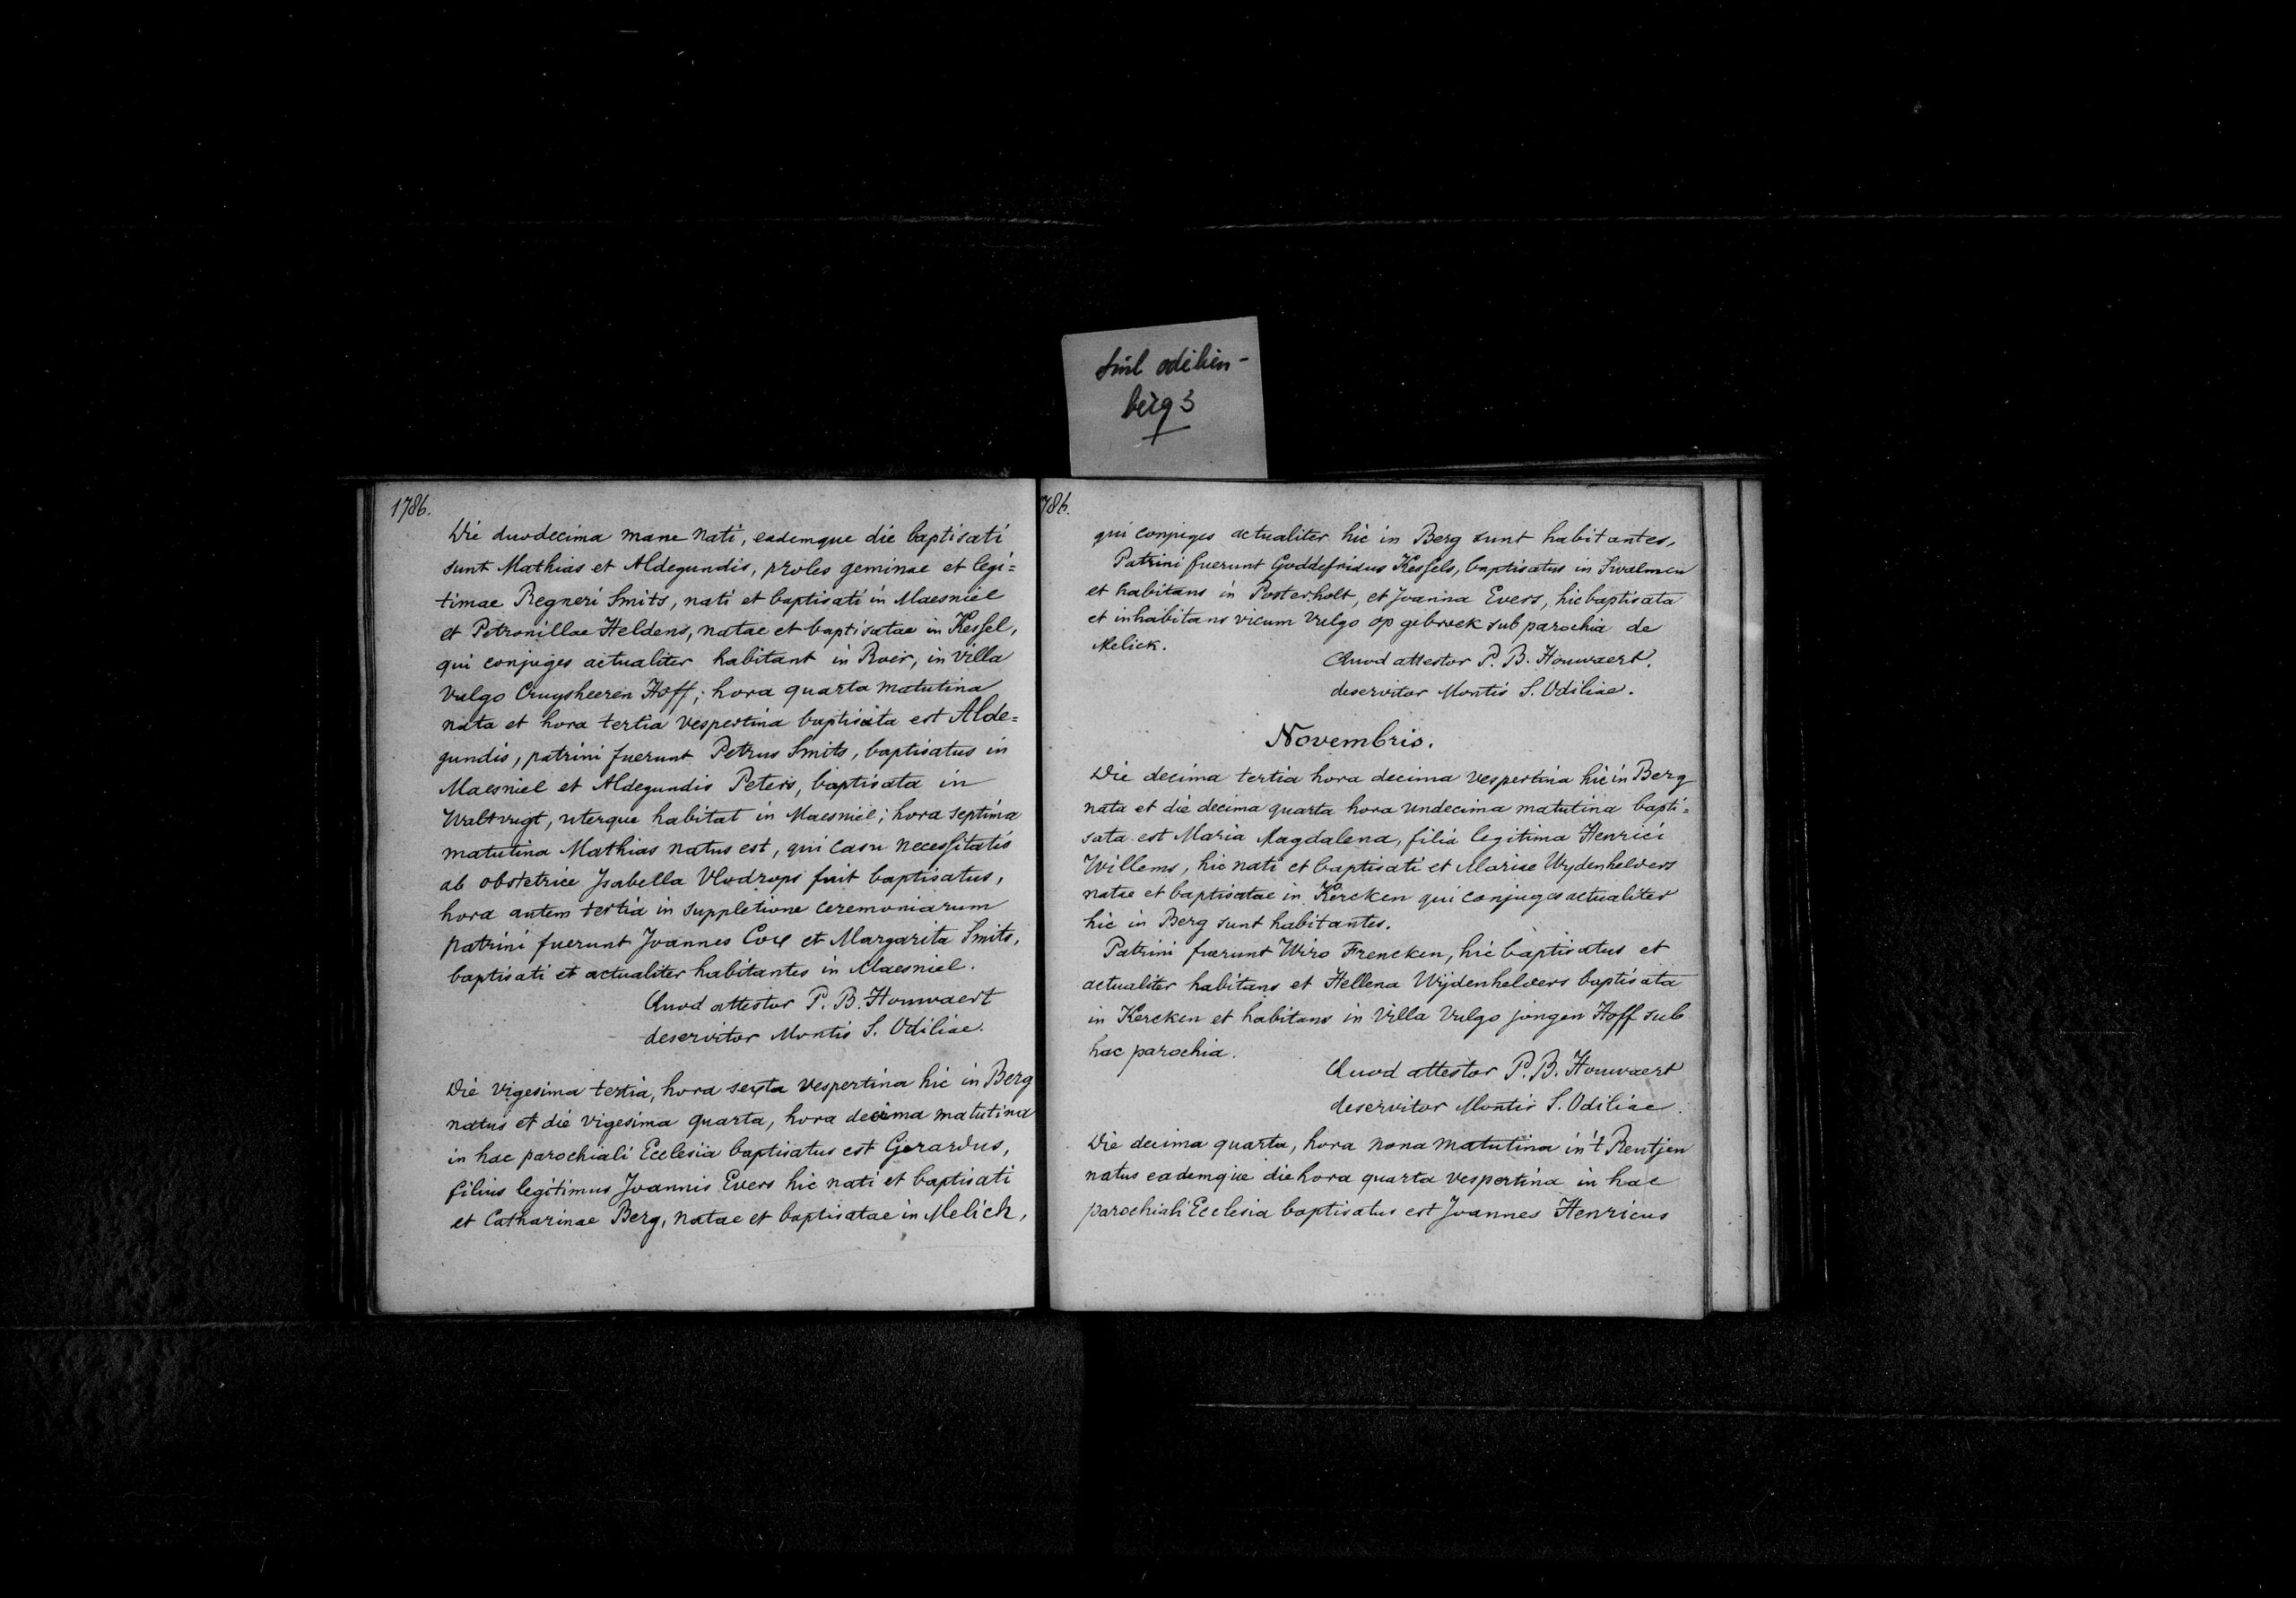 Sint odilien-
berg 3
1786.
Die duodecima mane nati, eademque die baptisati
sunt Mathias et Aldegundis, proles geminae et legi=
timae Regneri Smits, nati et baptisati in Maesniel
et Petronillae Heldens, natae et baptisatae in Kessel,
qui conjuges actualiter habitant in Roer, in villa
vulgo Cruysheeren Hoff; hora quarta matutina
nata et hora tertia vespertina baptisata est Alde=
gundis, patrini fuerunt Petrus Smits, baptisatus in
Maesniel et Aldegundis Peters, baptisata in
Waltvugt, uterque habitat in Maesniel; hora septima
matutina Mathias natus est, qui casu necessitatis
ab obstetrice Isabella Vlodrops fuit baptisatus,
hora autem tertia in suppletione ceremoniarum
patrini fuerunt Joannes Cox et Margarita Smits,
baptisati et actualiter habitantes in Maesniel.
Quod attestor P. B. Houwaert
deservitor Montis S. Odiliae.
Die vigesima tertia, hora sexta vespertina hic in Berg
natus et die vigesima quarta, hora decima matutina
in hac parochiali Ecclesia baptisatus est Gerardus,
filius legitimus Joannis Evers hic nati et baptisati
et Catharinae Berg, natae et baptisatae in Melich,
786.
qui conjuges actualiter hic in Berg sunt habitantes.
Patrini fuerunt Goddefridus Kessels, baptisatus in Swalmen
et habitans in Posterholt, et Joanna Evers, hic baptisata
et inhabitans vicum vulgo op gebroek sub parochia de
Melick.
Quod attestor P. B. Houwaert.
deservitor Montis S. Odiliae.
Novembris.
Die decima tertia hora decima vespertina hic in Berg
nata et die decima quarta hora undecima matutina bapti=
sata est Maria Magdalena, filia legitima Henrici
Willems, hic nati et baptisati et Mariae Wydenhelvers
natae et baptisatae in Kercken qui conjuges actualiter
hic in Berg sunt habitantes.
Patrini fuerunt Wiro Frencken, hic baptisatus et
actualiter habitans et Hellena Wijdenhelvers baptisata
in Kercken et habitans in villa vulgo jongen Hoff sub
hac parochia.
Quod attestor P. B. Houwaert
deservitor Montis S. Odiliae.
Die decima quarta, hora nona matutina in 't Rentjen
natus eademque die hora quarta vespertina in hac
parochiali Ecclesia baptisatus est Joannes Henricus